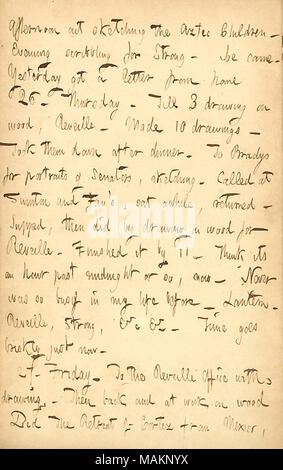 Afternoon out sketching the Aztec Children —
Evening scribbling for Strong — he came —
Yesterday got a letter from home
26 — Thursday — Till 3 drawing on
wood, Reveille — Made 10 drawings —
Took them down after dinner — To Bradys
for portraits of Senators, sketching — Called at
and Fay's, sat awhile, returned —
Supped, then did big drawing on wood for
Reveille — Finished it by 11 — Think its
an hour past midnight or so, now — Never
was so busy in my life before — Lantern —
Reveille, Strong, &c &c — Time goes
briskly just now —
27 — Friday — To the Reveille office with
drawing — Then back and at work on wood
Did The Retreat of Cortez from Mexico,
alamy
Image ID: MAKNYX
www.alamy.com